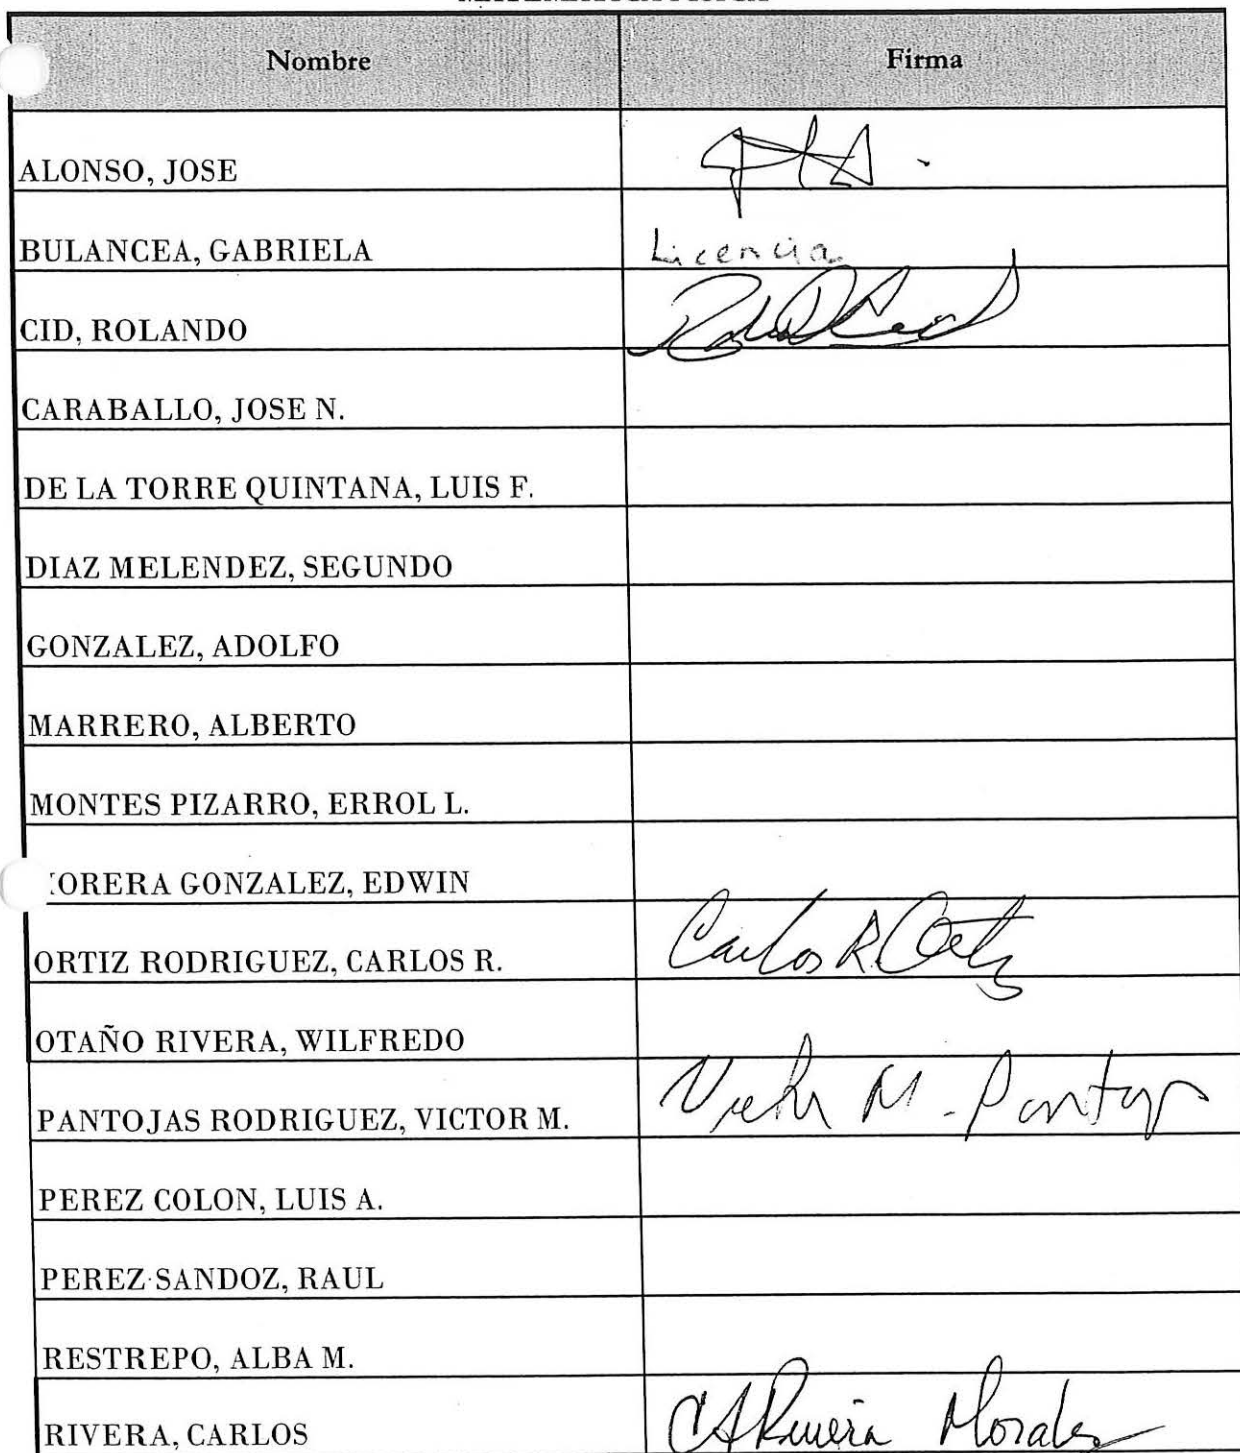 Nombre Firma
ALONSO, JOSE
BULANCEA, GABRIELA Licencia
CID, ROLANDO
CARABALLO, JOSE N.
DE LA TORRE QUINTANA, LUIS F.
DIAZ MELENDEZ, SEGUNDO
GONZALEZ, ADOLFO
MARRERO, ALBERTO
MONTES PIZARRO, ERROL L.
ORERA GONZALEZ, EDWIN
ORTIZ RODRIGUEZ, CARLOS R. Carlos R. Ortiz
OTAÑO RIVERA, WILFREDO
PANTOJAS RODRIGUEZ, VICTOR M. Victor M. Pantojas
PEREZ COLON, LUIS A.
PEREZ SANDOZ, RAUL
RESTREPO, ALBA M.
RIVERA, CARLOS CARivera Morales